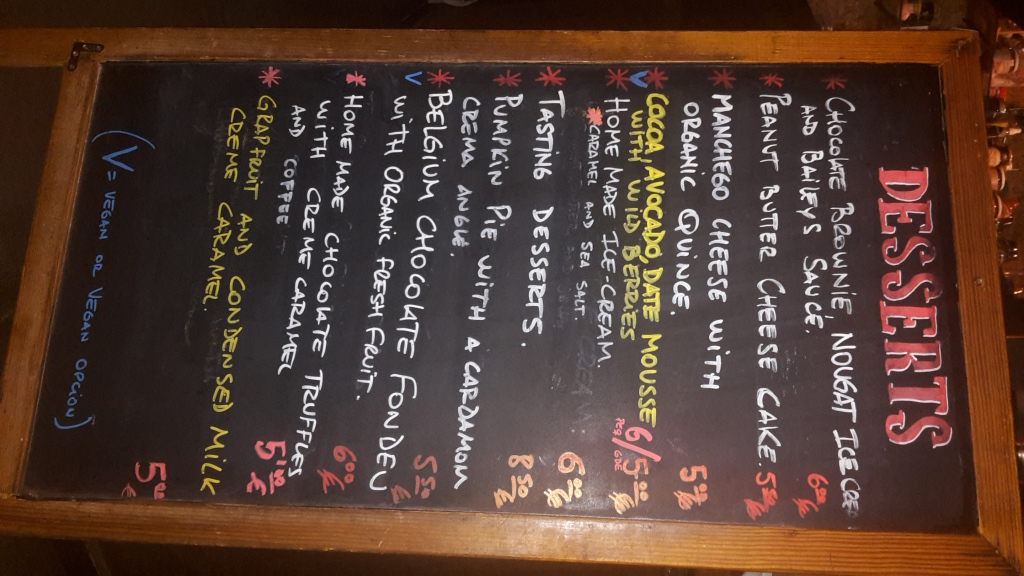 DESSERTS
* CHOCOLATE BROWNIE, NOUGAT ICE CRE
AND BAILEYS SAUCE. 600€
* PEANUT BUTTER CHEESE CAKE. 5
* MANCHEGO CHEESE WITH
ORGANIC QUINCE. 5
V * COCOA, AVOCADO, DATE MOUSSE
WITH WILD BERRIES 6/5,00 €
* HOME MADE ICE-CREAM.
* CARAMEL AND SEA SALT
* TASTING DESSERTS. 8,50 €
* PUMPKIN PIE WITH A CARDAMOM
CREMA ANGLE.
V * BELGIUM CHOCOLATE FONDEU
WITH ORGANIC FRESH FRUIT. 6,00 €
* HOME MADE CHOCOLATE TRUFFLES
WITH CREME CARAMEL
AND COFFEE
* GRAPFRUIT AND CONDENSED MILK
CREME CARAMEL.
(V = VEGAN OR VEGAN OPCION)